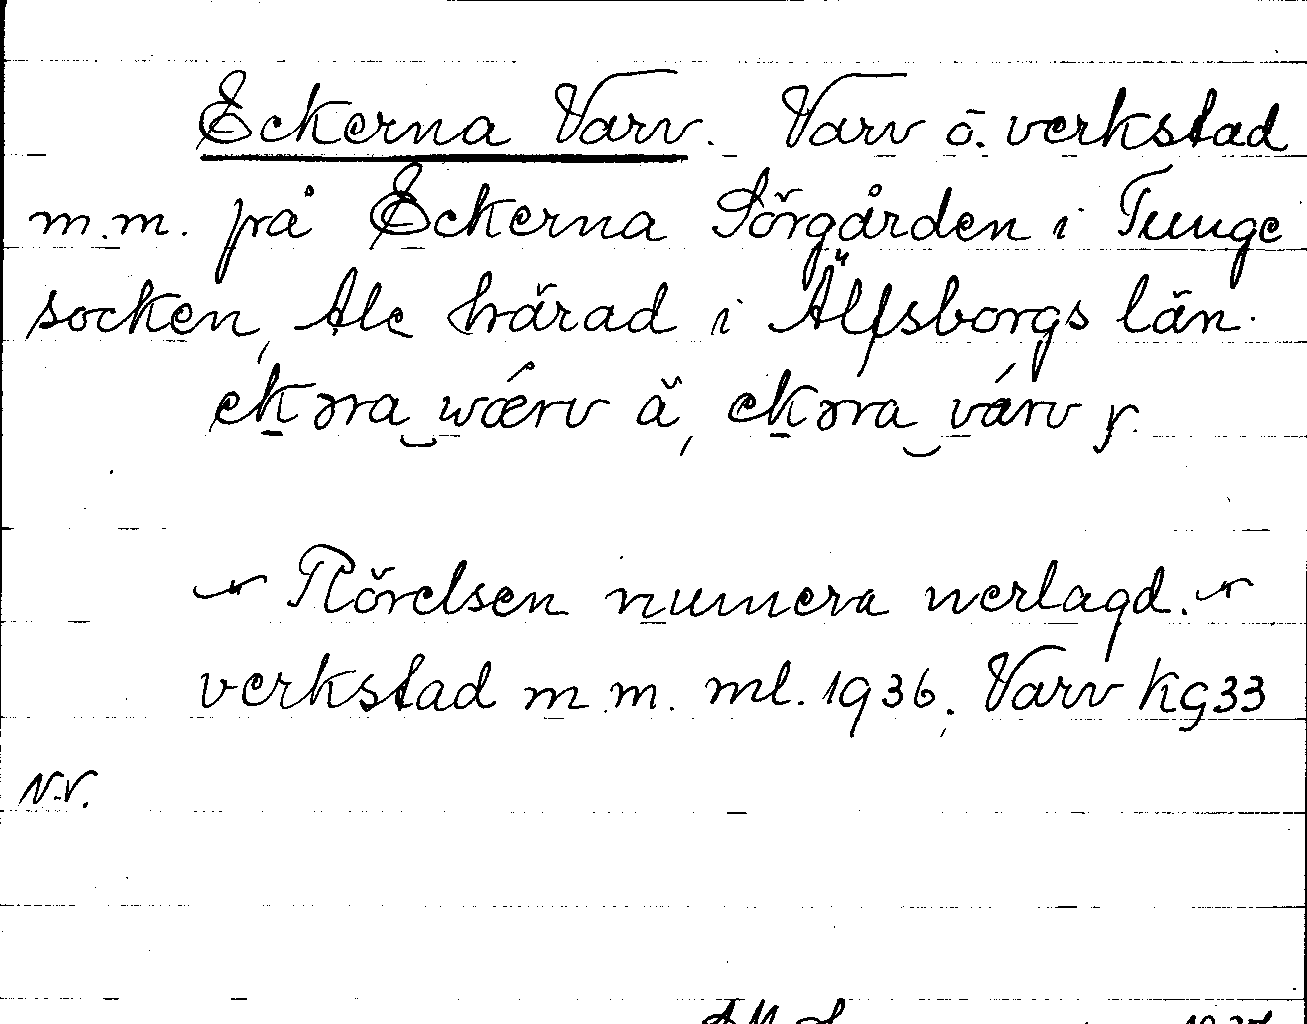 Eckerna Varv. Varv o. verkstad
m.m. på Eckerna Sörgården i Tunge
socken, Ale härad i Älfsborgs län.
ekərna wǽrv ä, ekərna várv y.
Rörelsen numera nerlagd.
verkstad m.m. ml. 1936. Varv kg33
N.V.